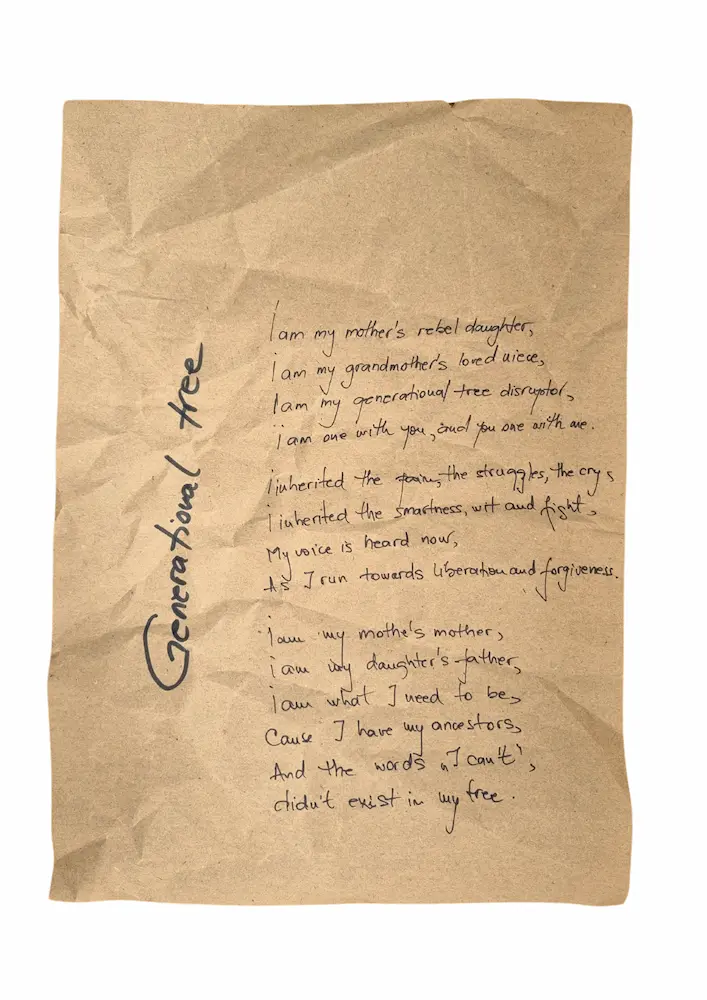 Generational tree
I am my mother's rebel daughter,
i am my grandmother's loved niece,
I am my generational tree disruptor,
i am one with you, and you one with me.
i inherited the pain, the struggles, the crys
i inherited the smartness, wit and fight,
My voice is heard now,
As I run towards liberation and forgiveness.
i am my mothe's mother,
i am my daughter's father,
i am what I need to be,
Cause I have my ancestors,
And the words „I can't",
didn't exist in my tree.